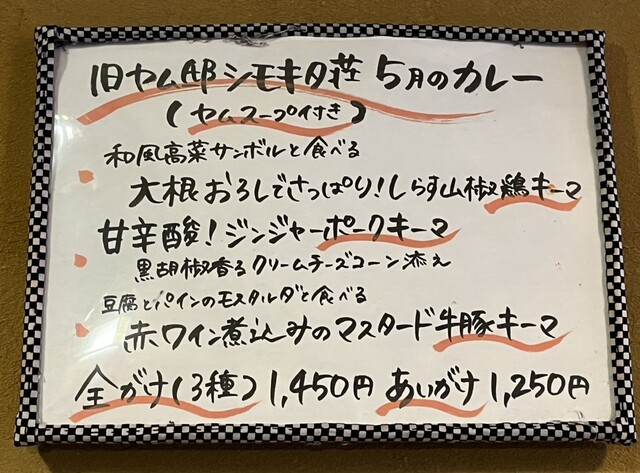 旧ヤム邸シモキタ荘 5月のカレー
(ヤムスープ付き)
和風高菜サンボルと食べる
大根おろしでさっぱり!しらす山椒鶏キーマ
甘辛酸!ジンジャーポークキーマ
黒胡椒香るクリームチーズコーン添え
豆腐とパインのモスタルダと食べる
赤ワイン煮込みのマスタード牛豚キーマ
全がけ(3種)1,450円 あいがけ1,250円